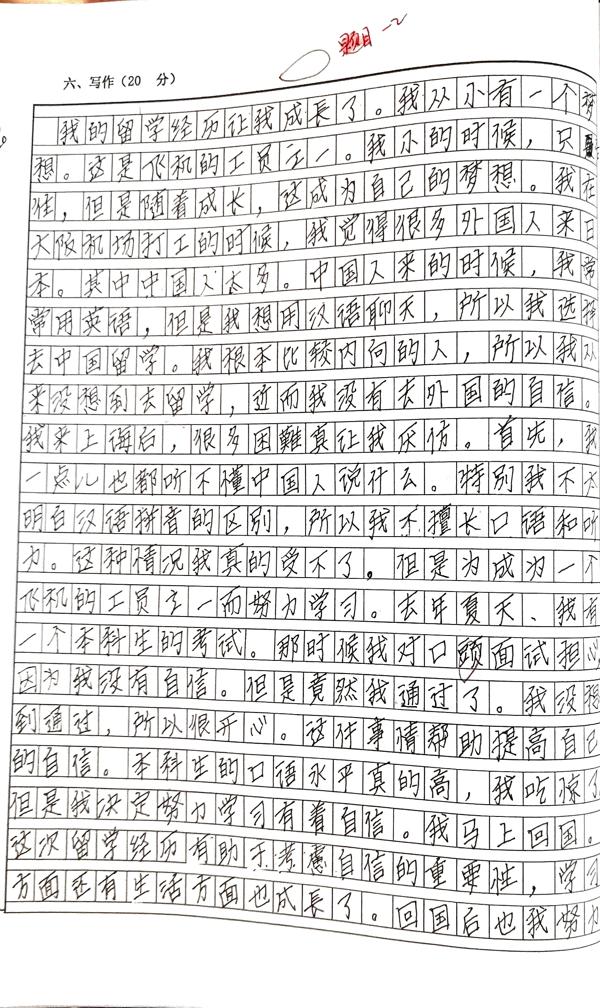 题目一2
六、写作（20 分）
我的留学经历让我成長了。我从小有一个梦
想。这是飞机的工员之一。我小的时候，只
往，但是随着成长，这成为自己的梦想。我在
大阪机场打工的时候，我觉得很多外国人来日
本。其中中国人太多。中国人来的时候，我常
常用英语，但是我想用汉语聊天，所以我选择
去中国留学。我根本比较内向的人，所以我从
来没想到去留学，近而我没有去外国的自信。
我来上海后，很多困難真让我灰伤。首先，我
一点儿也都听不懂中国人说什么。特别我不太
明白汉语拼音的区别，所以我不擅长口语和听
力。这种情况我真的受不了。但是为成为一个
飞机的工员之一而努力学习。去年夏天、我有
一个本科生的考试。那时候我对口頭面试担心，
因为我没有自信。但是竟然我通过了。我没想
到通过，所以很开心。这件事情帮助提高自己
的自信。本科生的口语水平真的高，我吃惊了
但是我决定努力学习有着自信。我马上回国。
这次留学经历有助于考慮自信的重要性，学习
方面还有生活方面也成長了。回国后也我努力